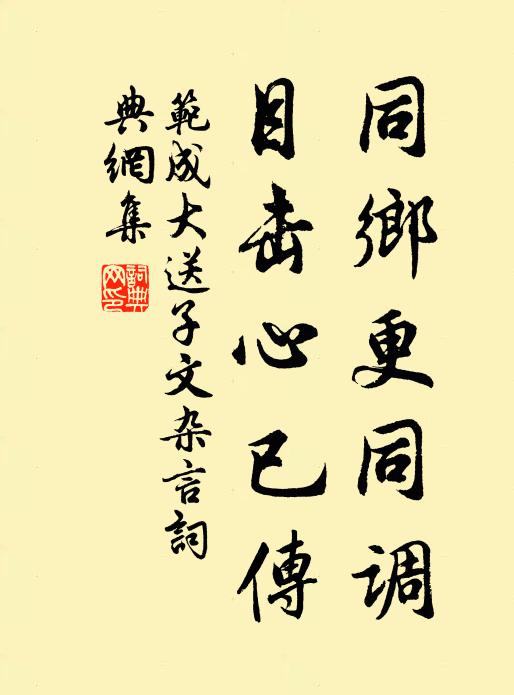 同鄉更同调
目击心已傳
範成大送子文杂言詞
典網集
詞典
网印